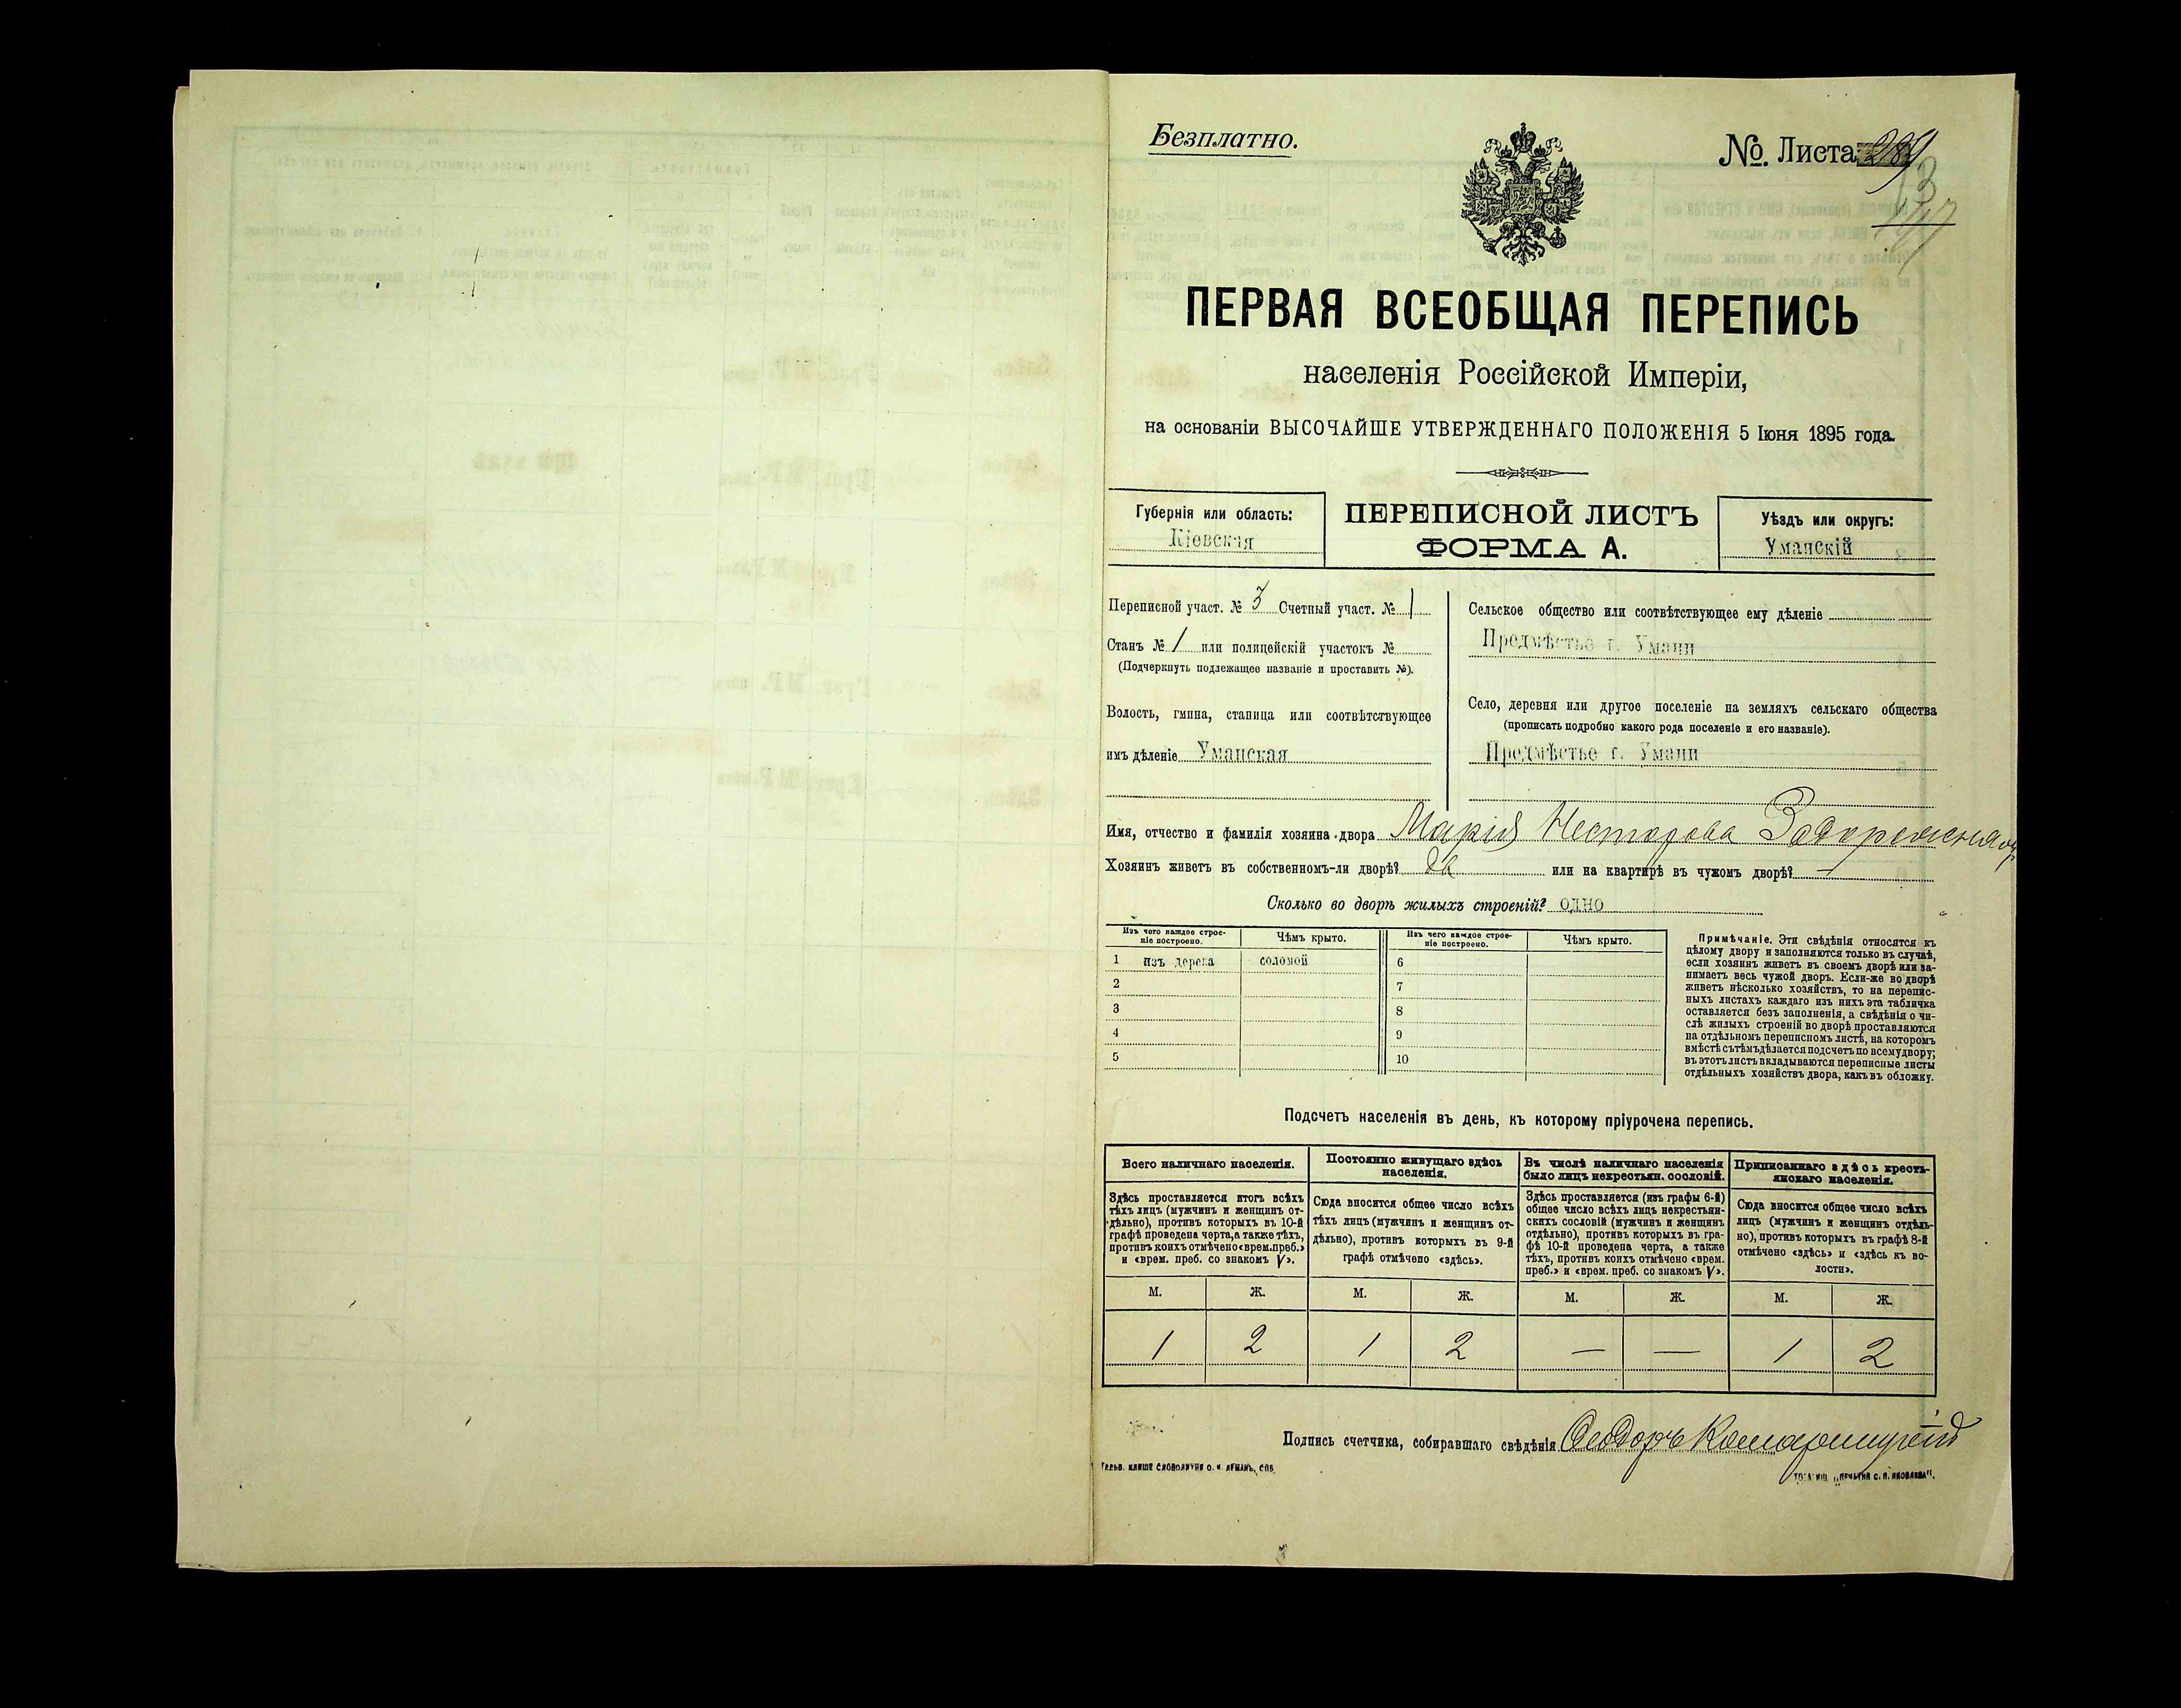 Безплатно.
№. Листа 289
ПЕРВАЯ ВСЕОБЩАЯ ПЕРЕПИСЬ
населенія Россійской Имперіи,
на основаніи ВЫСОЧАЙШЕ УТВЕРЖДЕННАГО ПОЛОЖЕНІЯ 5 Іюня 1895 года.
Губернія или область:
Кіевская
ПЕРЕПИСНОЙ ЛИСТЪ
ФОРМА А.
Уѣздъ или округъ:
Уманскій
Переписной участ. № 3 Счетный участ. № 1
Станъ № 1 или полицейскій участокъ №
(Подчеркнуть подлежащее названіе и проставить №).
Волость, гмина, станица или соотвѣтствующее
имъ дѣленіе Уманская
Сельское общество или соотвѣтствующее ему дѣленіе
Предмѣстье г. Умани
Село, деревня или другое поселеніе на земляхъ сельскаго общества
(прописать подробно какого рода поселеніе и его названіе).
Предмѣстье г. Умани
Имя, отчество и фамилія хозяина двора Марія Несторова
Хозяинъ живетъ въ собственномъ-ли дворѣ? да или на квартирѣ въ чужомъ дворѣ? —
Сколько во дворѣ жилыхъ строеній? одно
Изъ чего каждое строе-
ніе построено.
Чѣмъ крыто.
Изъ чего каждое строе-
ніе построено.
Чѣмъ крыто.
1 изъ дерева соломой 6
2 7
3 8
4 9
5 10
Примѣчаніе. Эти свѣдѣнія относятся къ
цѣлому двору и заполняются только въ случаѣ,
если хозяинъ живетъ въ своемъ дворѣ или за-
нимаетъ весь чужой дворъ. Если-же во дворѣ
живетъ нѣсколько хозяйствъ, то на перепис-
ныхъ листахъ каждаго изъ нихъ эта табличка
оставляется безъ заполненія, а свѣдѣнія о чи-
слѣ жилыхъ строеній во дворѣ проставляются
на отдѣльномъ переписномъ листѣ, на которомъ
вмѣстѣ съ тѣмъ дѣлается подсчетъ по всему двору;
въ этотъ листъ вкладываются переписные листы
отдѣльныхъ хозяйствъ двора, какъ въ обложку.
Подсчетъ населенія въ день, къ которому пріурочена перепись.
Всего наличнаго населенія.
Здѣсь проставляется итогъ всѣхъ
тѣхъ лицъ (мужчинъ и женщинъ от-
дѣльно), противъ которыхъ въ 10-й
графѣ проведена черта, а также тѣхъ,
противъ коихъ отмѣчено «врем. преб.»
и «врем. преб. со знакомъ V».
Постоянно живущаго здѣсь
населенія.
Сюда вносится общее число всѣхъ
тѣхъ лицъ (мужчинъ и женщинъ от-
дѣльно), противъ которыхъ въ 9-й
графѣ отмѣчено «здѣсь».
Въ числѣ наличнаго населенія
было лицъ некрестьян. сословій.
Здѣсь проставляется (изъ графы 6-й)
общее число всѣхъ лицъ некрестьян-
скихъ сословій (мужчинъ и женщинъ
отдѣльно), противъ которыхъ въ гра-
фѣ 10-й проведена черта, а также
тѣхъ, противъ коихъ отмѣчено «врем.
преб.» и «врем. преб. со знакомъ V».
Приписаннаго здѣсь кресть-
янскаго населенія.
Сюда вносится общее число всѣхъ
лицъ (мужчинъ и женщинъ отдѣль-
но), противъ которыхъ въ графѣ 8-й
отмѣчено «здѣсь» и «здѣсь къ во-
лости».
М. Ж. М. Ж. М. Ж. М. Ж.
1 2 1 2 — — 1 2
Подпись счетчика, собиравшаго свѣдѣнія Ѳеодоръ Комарницкій